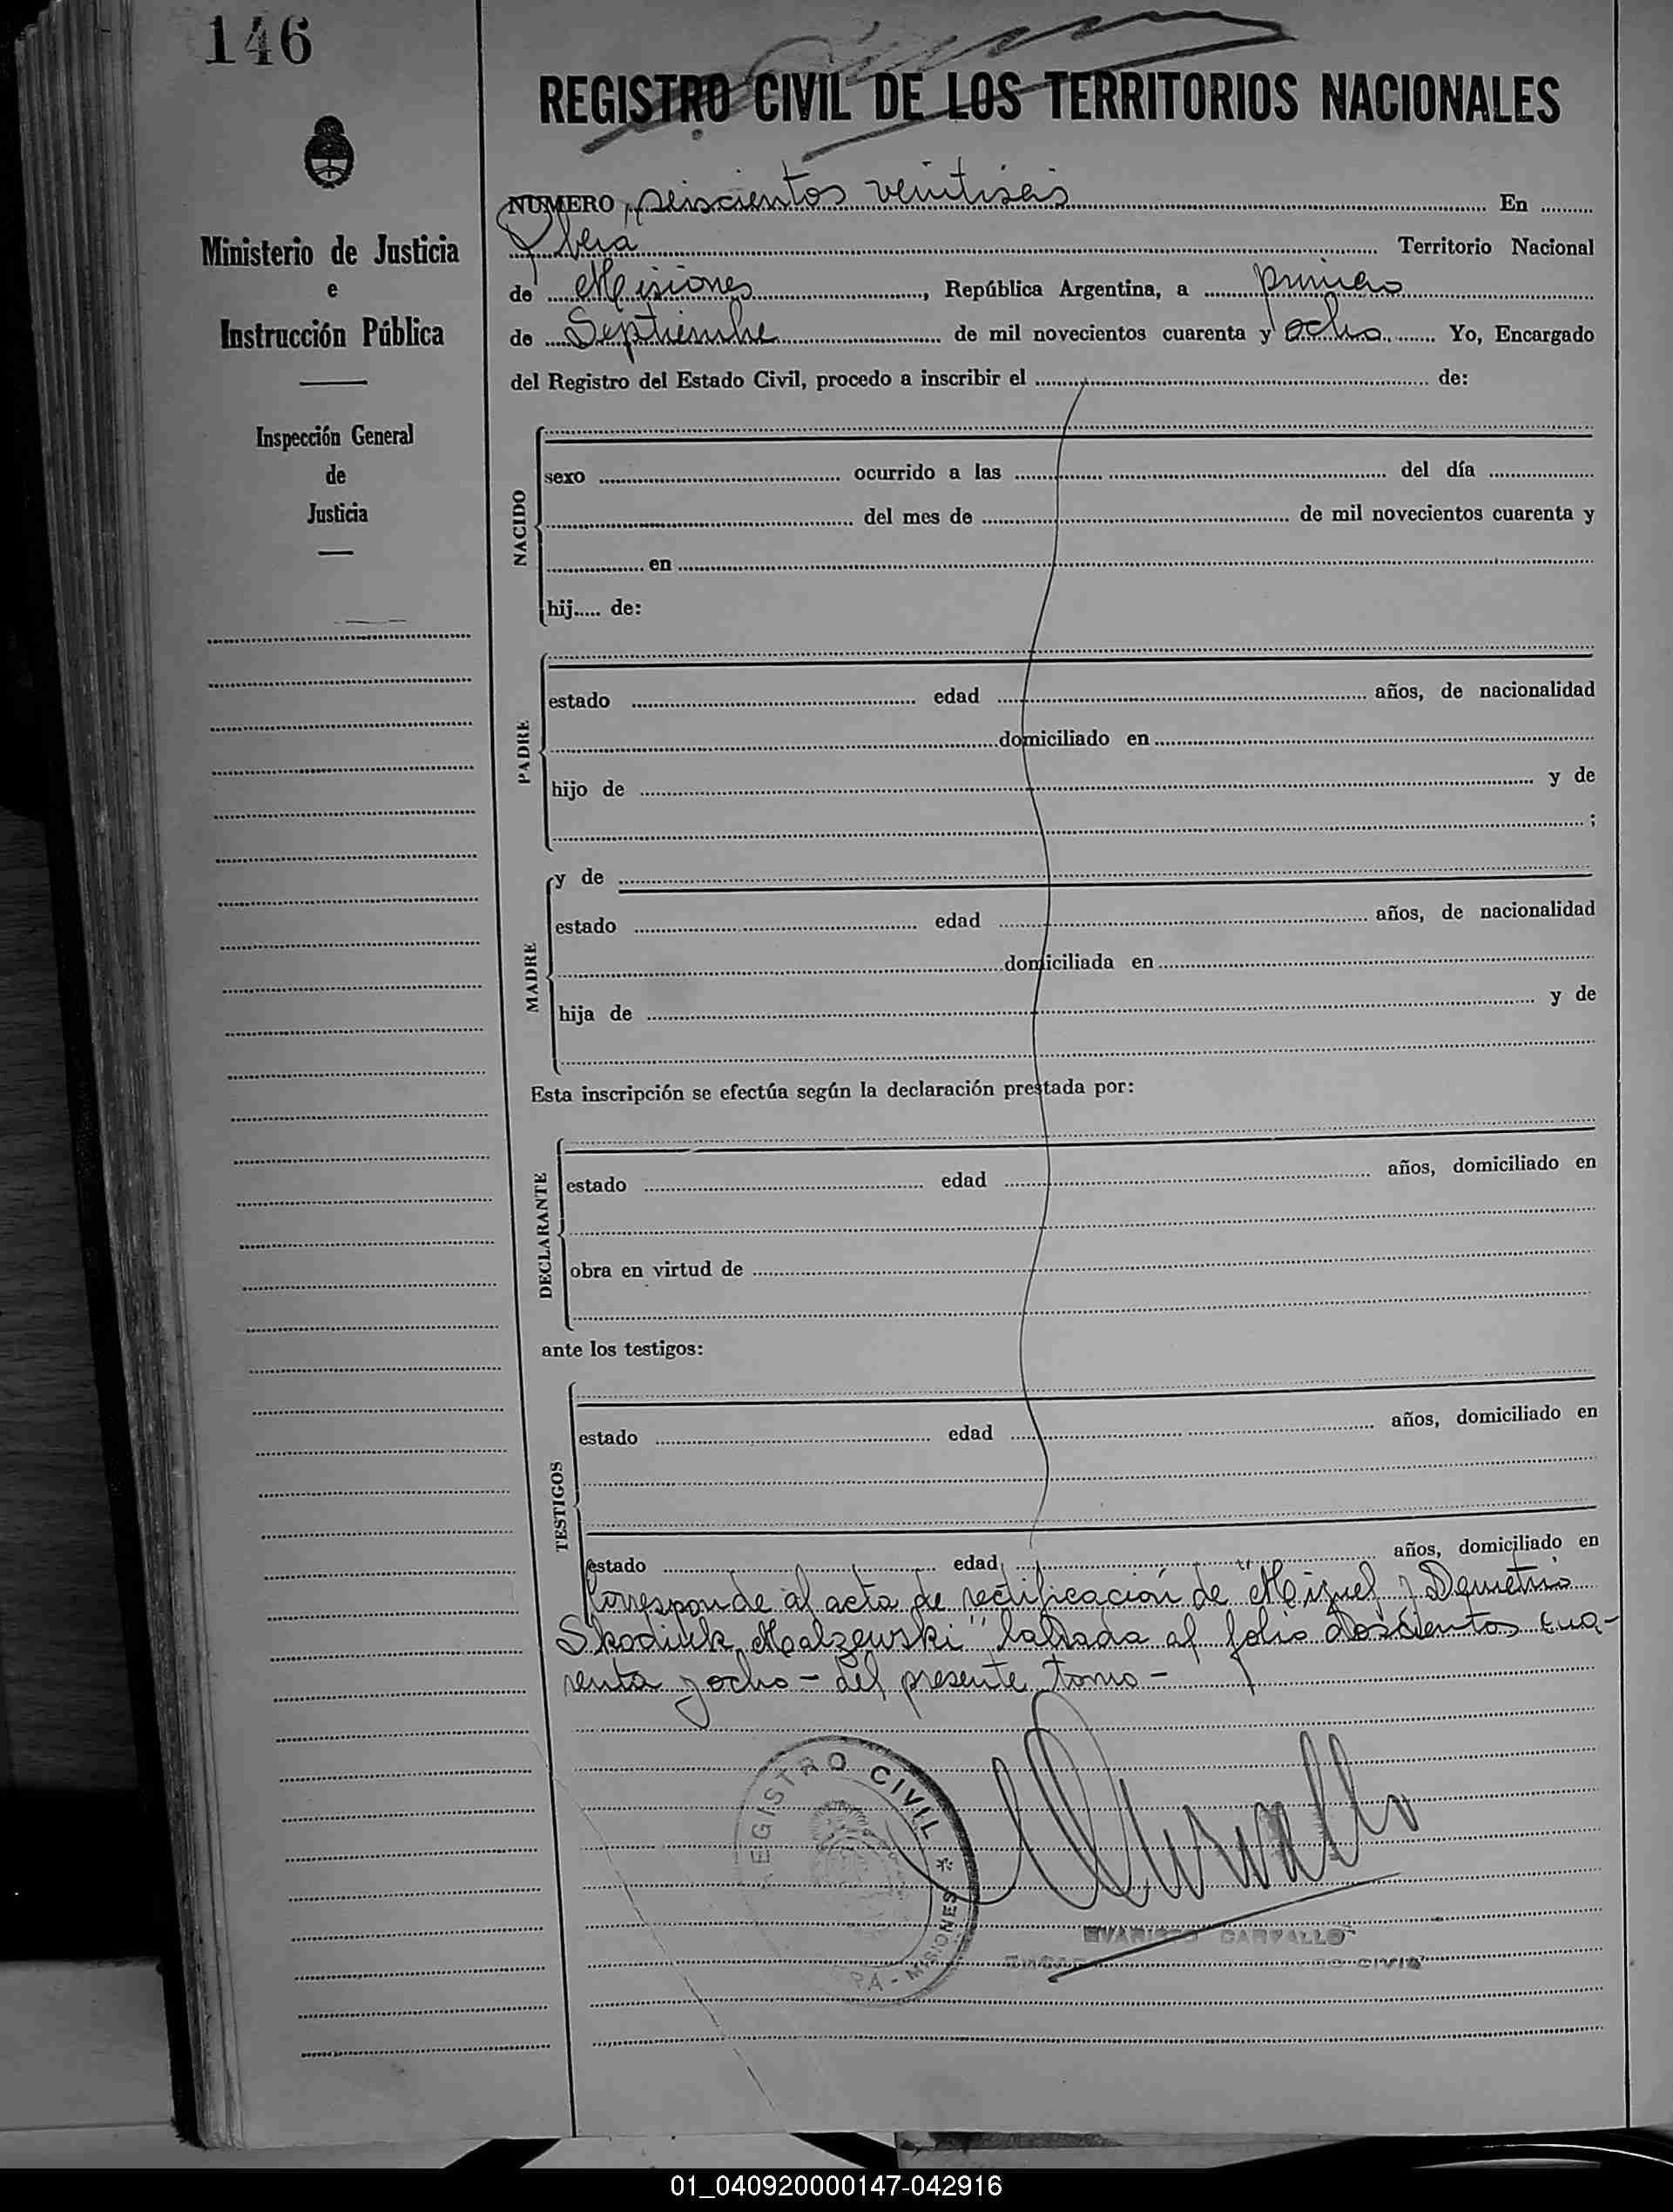 146
REGISTRO CIVIL DE LOS TERRITORIOS NACIONALES
Ministerio de Justicia
e
Instrucción Pública
Inspección General
de
Justicia
NUMERO seiscientos veintiseis En
Oberá Territorio Nacional
de Misiones, República Argentina, a primero
de Septiembre de mil novecientos cuarenta y ocho. Yo, Encargado
del Registro del Estado Civil, procedo a inscribir el de:
NACIDO
sexo ocurrido a las del día
del mes de de mil novecientos cuarenta y
en
hij..... de:
PADRE
estado edad años, de nacionalidad
domiciliado en
hijo de y de
;
MADRE
y de
estado edad años, de nacionalidad
domiciliada en
hija de y de
Esta inscripción se efectúa según la declaración prestada por:
DECLARANTE
estado edad años, domiciliado en
obra en virtud de
ante los testigos:
TESTIGOS
estado edad años, domiciliado en
estado edad años, domiciliado en
Corresponde al acta de rectificación de "Miguel y Demetrio
Skodiuk Malzewski" labrada al folio doscientos cua-
renta y ocho - del presente tomo -
REGISTRO CIVIL * MISIONES
EVARISTO CARVALLO
CIVIL
01_040920000147-042916